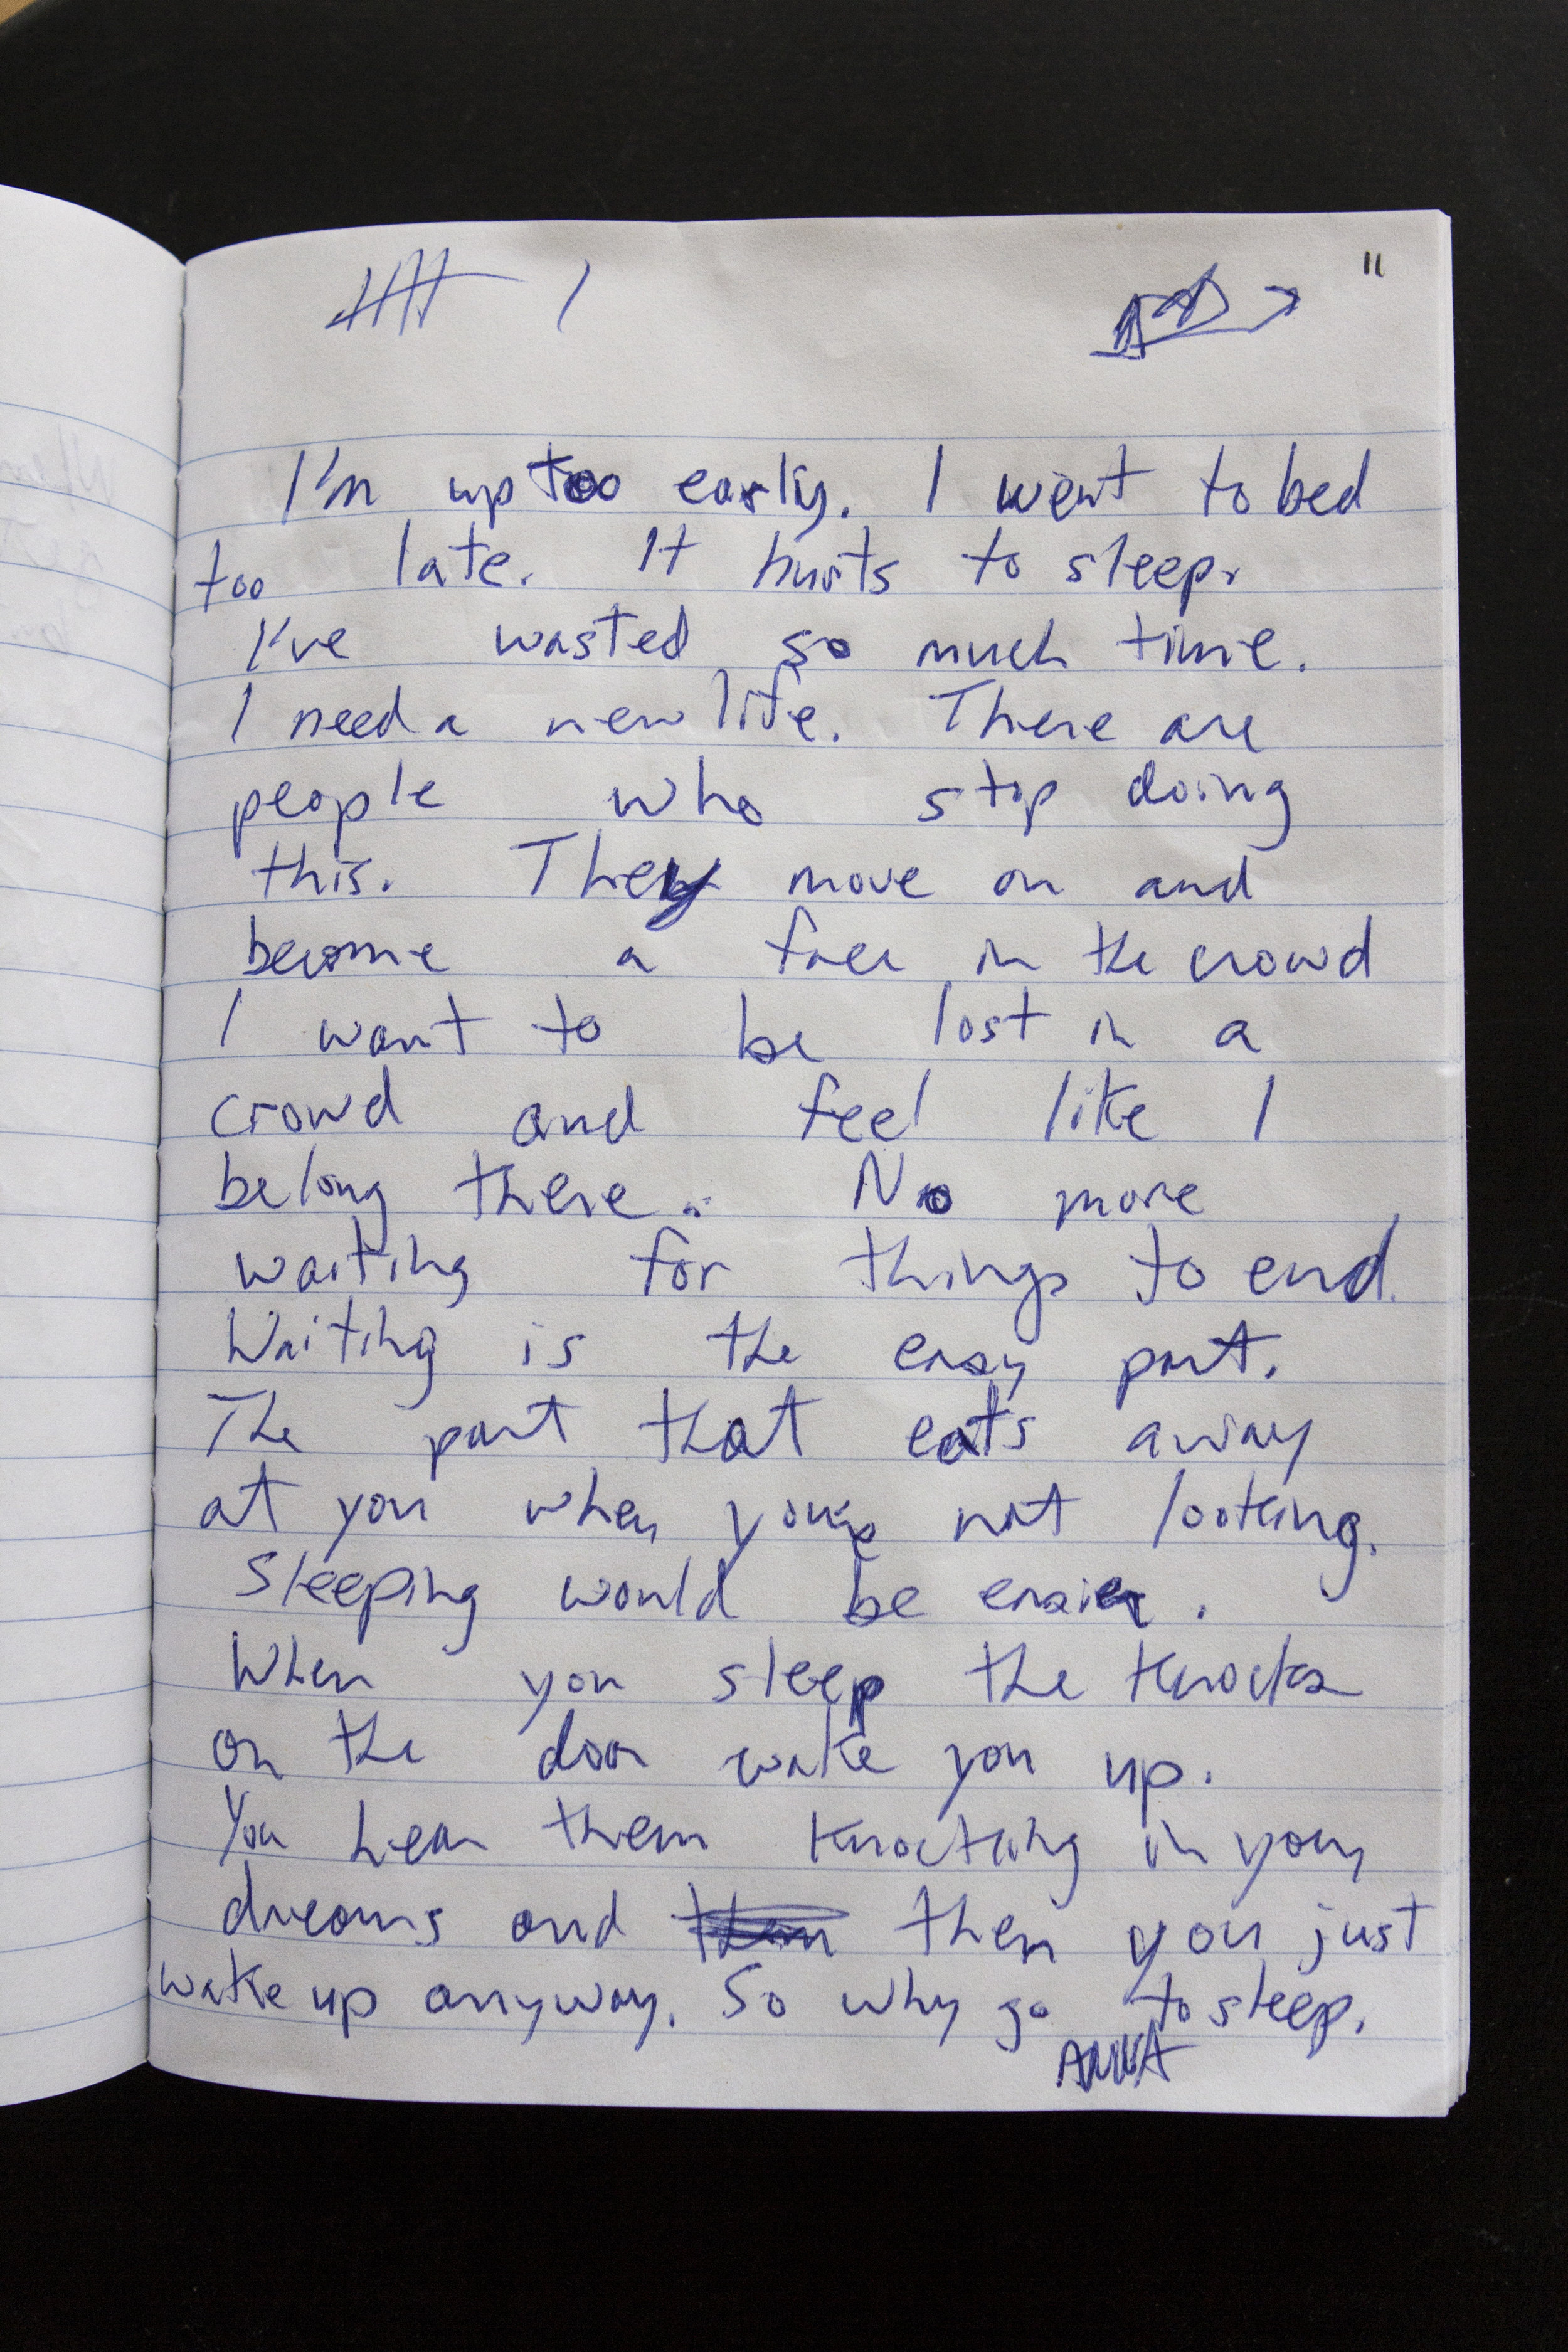 11
I'm up too early. I went to bed
too late. It hurts to sleep.
I've wasted so much time.
I need a new life. There are
people who stop doing
this. They move on and
become a face in the crowd
I want to be lost in a
crowd and feel like I
belong there. No more
waiting for things to end.
Waiting is the easy part.
The part that eats away
at you when you're not looking.
Sleeping would be easier.
When you sleep the knocks
on the door wake you up.
You hear them knocking in your
dreams and then you just
wake up anyway. So why go to sleep.